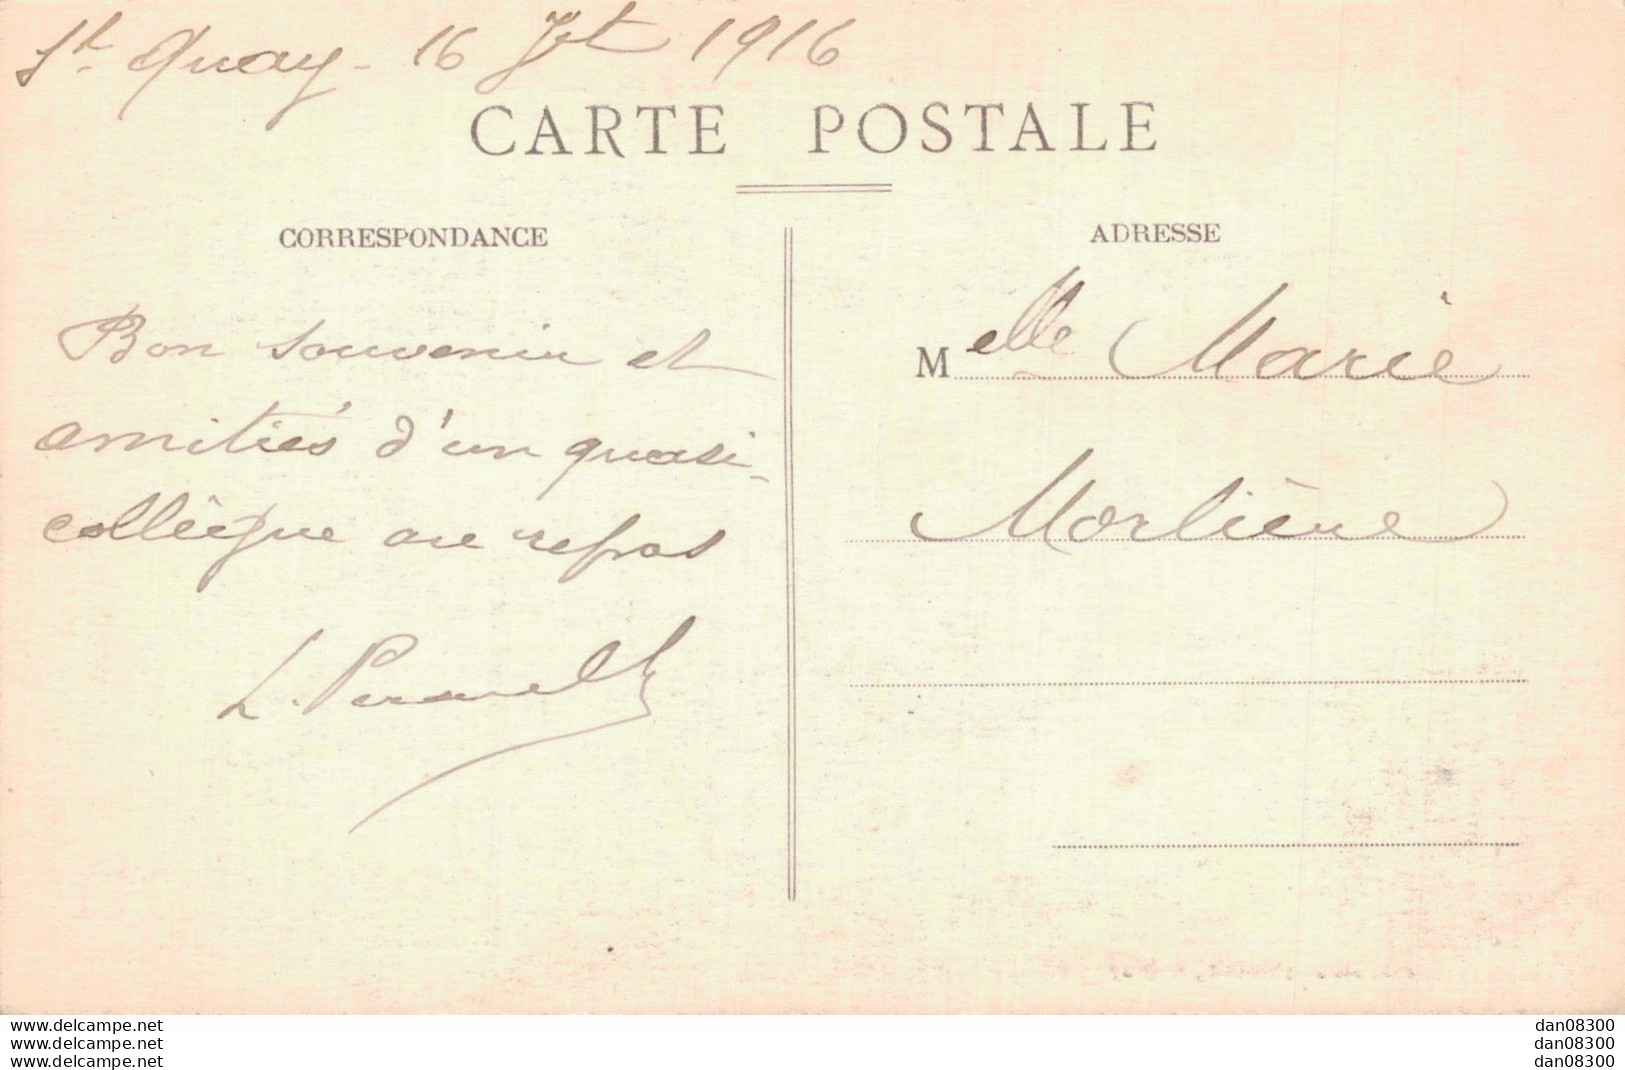 St Quay - 16 Jet 1916
CARTE POSTALE
CORRESPONDANCE
Bon souvenir et
amitiés d'un quasi-
collègue au repos
ADRESSE
Melle Marie
Morlière
www.delcampe.net
www.delcampe.net
www.delcampe.net
dan08300
dan08300
dan08300